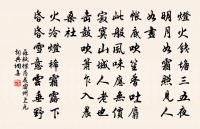 燈火錢塘三五夜
明月如霜照見人
如畫
帳底吹笙香吐麝
此般風味應無價
寂寞山城人老也
擊鼓吹簫乍入農
桑社
火冷燈稀霜露下
昏昏雪意雲垂野
蘇軾蝶戀花密州上元